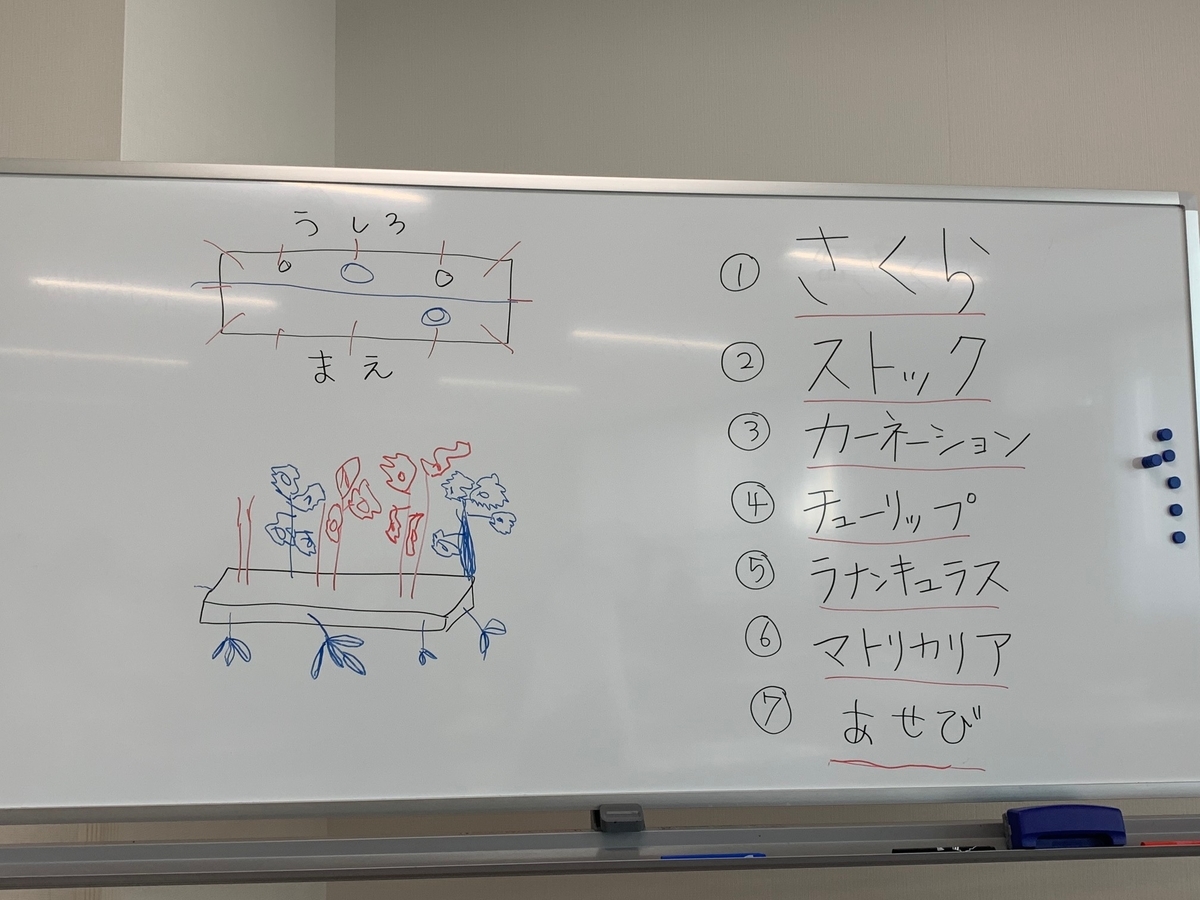 うしろ
まえ
① さくら
② ストック
③ カーネーション
④ チューリップ
⑤ ラナンキュラス
⑥ マトリカリア
⑦ あせび